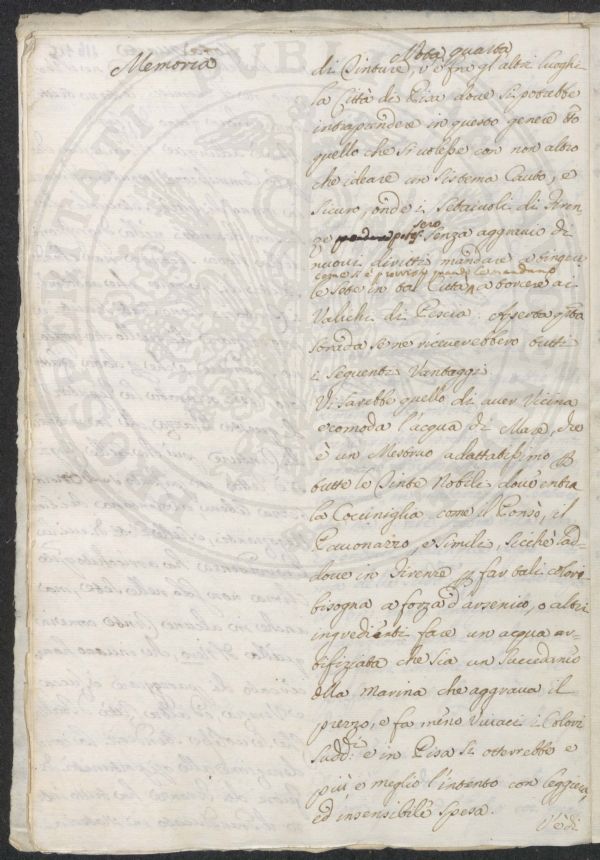 Memoria
Nota quarta
di Tinture, v'è fra gl'altri luoghi
la Città di Pisa dove si potrebbe
intraprendere in questo genere tto
quello che si volesse con non altro
che ideare un sistema Cauto, e
sicuro, onde i Setaiuoli di Firen
ze potessero senza aggravio di
nuovi diritti mandare a tingier
come si è provvisto quando le mandano
le sete in tal Città a torcere ai
Valichi di Pescia. Aperta qta
strada se ne riceverebbero tutti
i seguenti Vantaggi.
Vi sarebbe quello di aver Vicina
e comoda l'acqua di Mare, che
è un Mestruo adattatissimo p
tutte le Tinte Nobili dove entra
la Cocciniglia come il Ponsò, il
Pavonazzo, e simili, sicchè lad-
dove in Firenze p far tali colori
bisogna a forza d'arsenico, o altri
ingredienti fare un acqua ar-
tifiziata che sia un succedaneo
della Marina che aggrava il
prezzo, e fa meno vivaci i Colori
sudd.i e in Pisa si otterrebbe e
più, e meglio l'intento con leggiera,
ed insensibile spesa.
Vedi